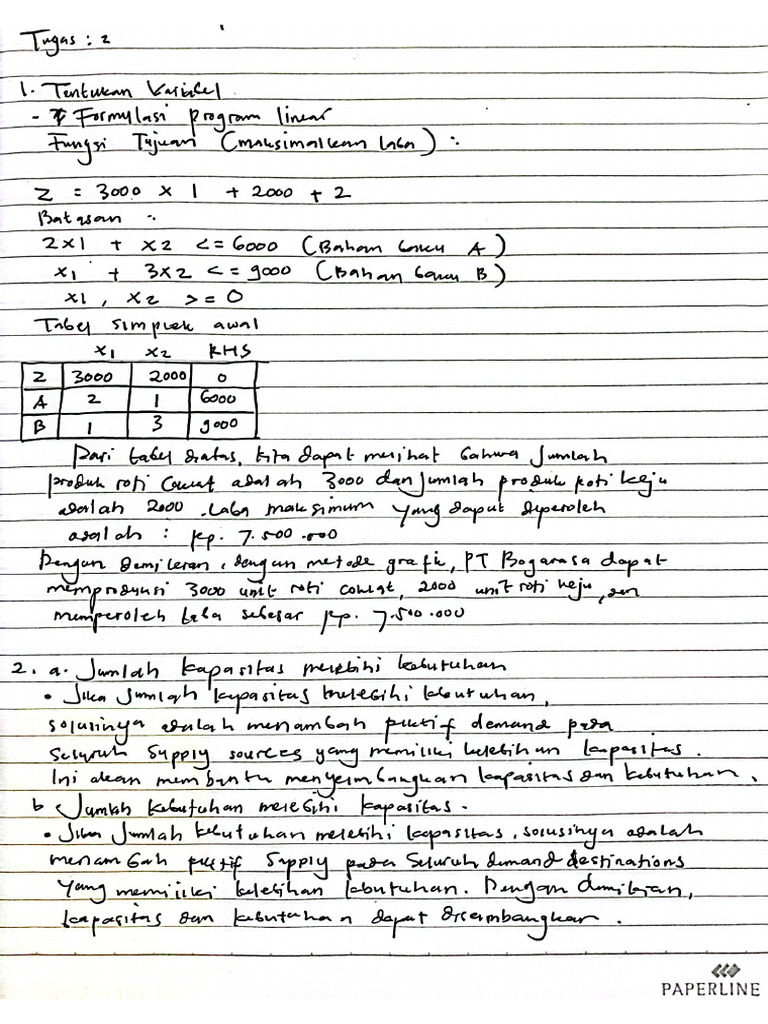 Tugas : 2
1. Tentukan Variabel
- Formulasi program linear
Fungsi Tujuan (maksimalkan laba) :
Z = 3000 x 1 + 2000 + 2
Batasan :
2x1 + x2 <= 6000 (Bahan baku A)
x1 + 3x2 <= 9000 (Bahan baku B)
x1, x2 >= 0
Tabel simplek awal
x1 x2 RHS
Z 3000 2000 0
A 2 1 6000
B 1 3 9000
Dari tabel diatas, kita dapat melihat bahwa jumlah
produk roti coklat adalah 3000 dan jumlah produk roti keju
adalah 2000. Laba maksimum yang dapat diperoleh
adalah : Rp. 7.500.000
Dengan demikian, dengan metode grafik, PT Bogarasa dapat
memproduksi 3000 unit roti coklat, 2000 unit roti keju, dan
memperoleh laba sebesar Rp. 7.500.000
2. a. Jumlah kapasitas melebihi kebutuhan
• Jika jumlah kapasitas melebihi kebutuhan,
solusinya adalah menambah fiktif demand pada
seluruh supply sources yang memiliki kelebihan kapasitas.
Ini akan membantu menyeimbangkan kapasitas dan kebutuhan.
b. Jumlah kebutuhan melebihi kapasitas.
• Jika jumlah kebutuhan melebihi kapasitas, solusinya adalah
menambah fiktif supply pada seluruh demand destinations
yang memiliki kelebihan kebutuhan. Dengan demikian,
kapasitas dan kebutuhan dapat diseimbangkan.
PAPERLINE